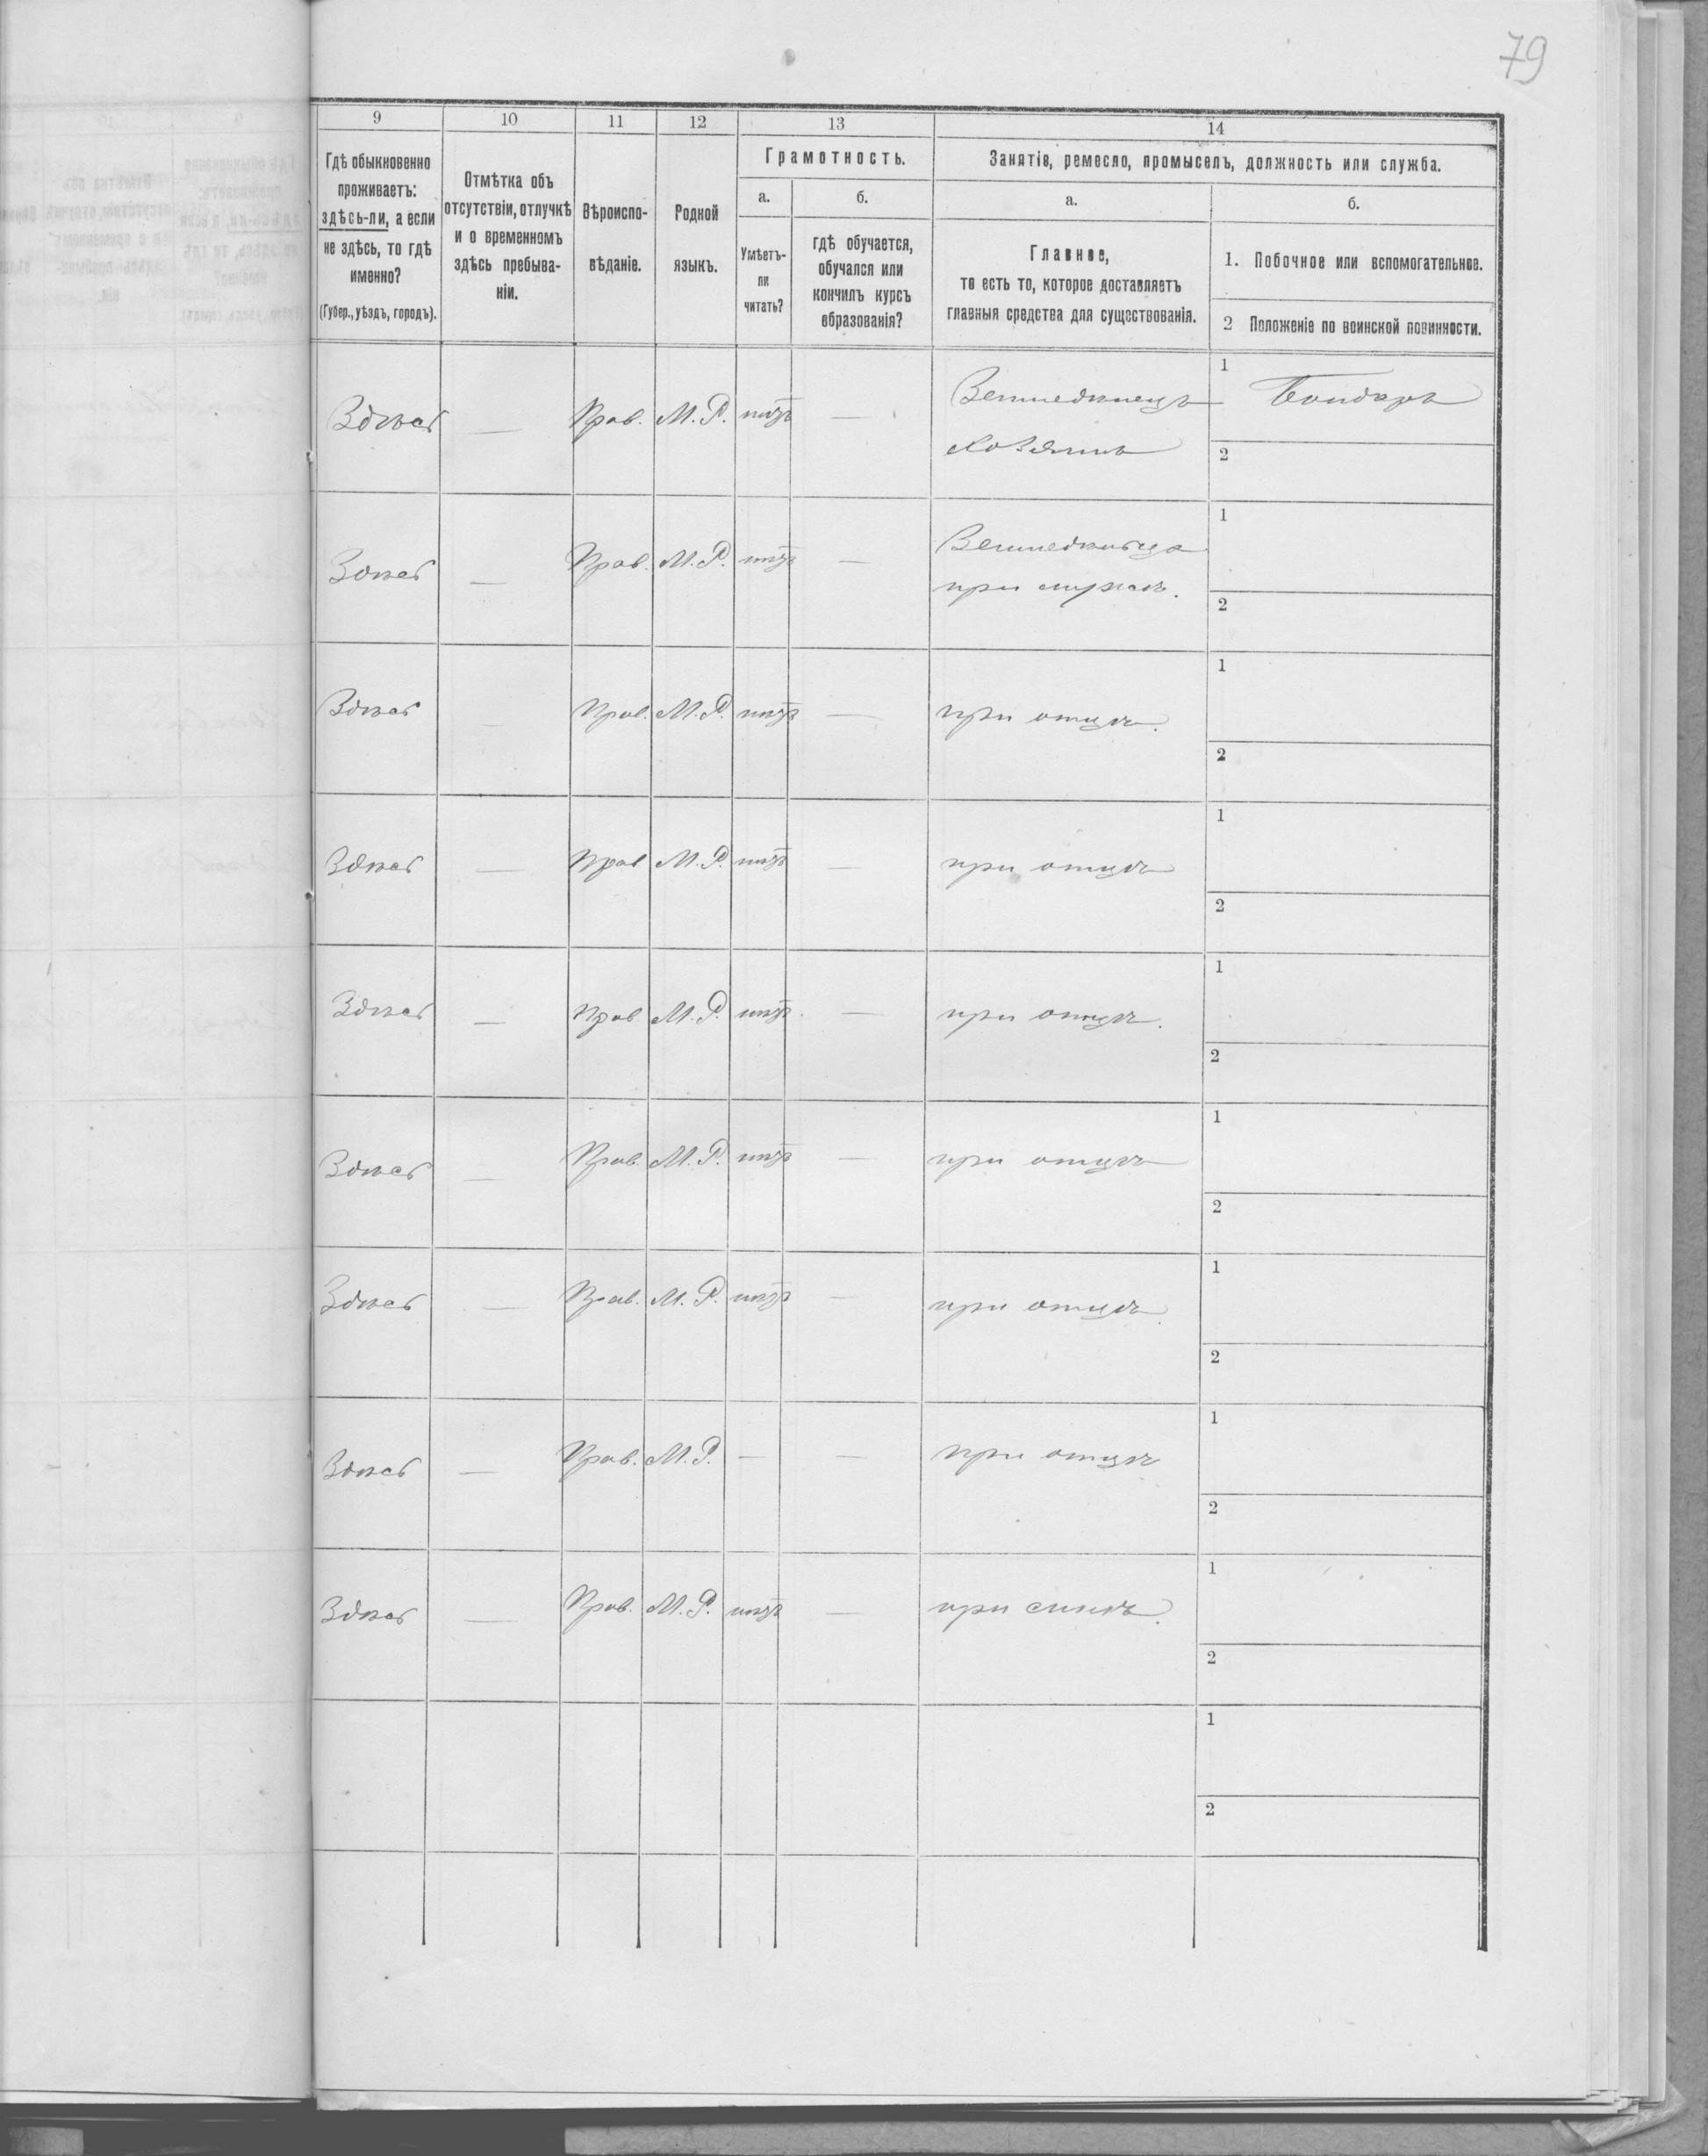 79
9 10 11 12 13 14
Гдѣ обыкновенно
проживаетъ:
здѣсь-ли, а если
не здѣсь, то гдѣ
именно?
(Губер., уѣздъ, городъ).
Отмѣтка объ
отсутствіи, отлучкѣ
и о временномъ
здѣсь пребыва-
ніи.
Вѣроиспо-
вѣданіе.
Родной
языкъ.
Грамотность.
а. б.
Умѣетъ-
ли
читать?
гдѣ обучается,
обучался или
кончилъ курсъ
образованія?
Занятіе, ремесло, промыселъ, должность или служба.
а. б.
Главное,
то есть то, которое доставляетъ
главныя средства для существованія.
1. Побочное или вспомогательное.
2 Положеніе по воинской повинности.
Здѣсь — Прав. М. Р. нѣтъ — Земледѣлецъ 1 Бондарь
хозяинъ 2
Здѣсь — Прав. М. Р. нѣтъ — Земледѣлица 1
при мужѣ. 2
Здѣсь — Прав. М. Р. нѣтъ — при отцѣ. 1
2
Здѣсь — Прав М. Р. нѣтъ — при отцѣ 1
2
Здѣсь — Прав. М. Р. нѣтъ — при отцѣ. 1
2
Здѣсь — Прав. М. Р. нѣтъ — при отцѣ 1
2
Здѣсь — Прав. М. Р. нѣтъ — при отцѣ. 1
2
Здѣсь — Прав. М. Р. — — при отцѣ 1
2
Здѣсь — Прав. М. Р. нѣтъ — при сынѣ. 1
2
1
2